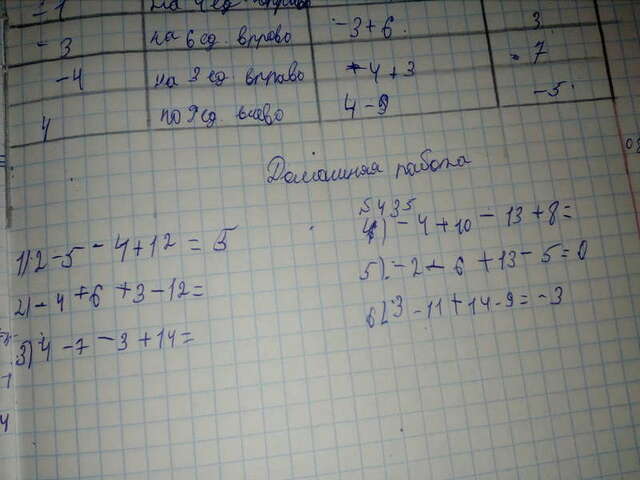 -1 на 4 ед. вправо
-3 на 6 ед. вправо -3+6. 3
-4 на 3 ед вправо -4+3 -7
4 по 9 ед влево 4-9 -5
Домашняя работа
5435
1) 2-5-4+12=5
2) -4+6+3-12=
3) 4-7-3+14=
4) -4+10-13+8=
5) -2+6+13-5=0
6) 3-11+14-9=-3